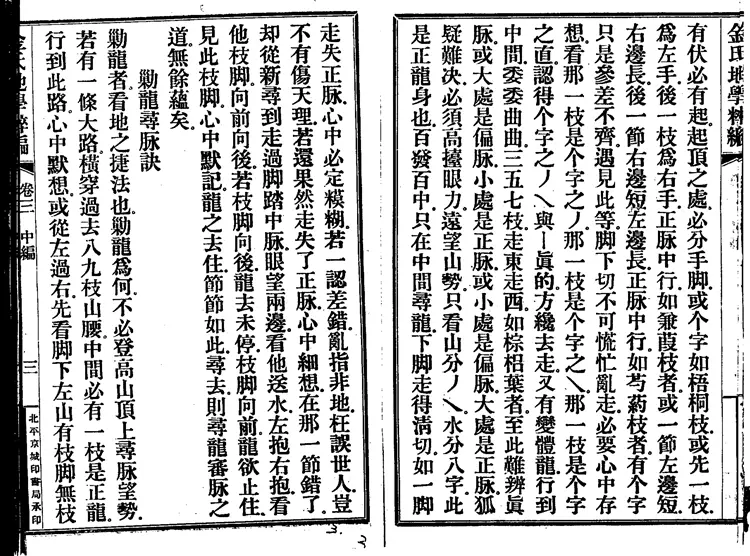 金氏地學粹編
有伏必有起起頂之處必分手脚或个字如梧桐枝或先一枝
爲左手後一枝爲右手正脉中行如蒹葭枝者或一節左邊短
右邊長後一節右邊短左邊長正脉中行如芍葯枝者有个字
只是參差不齊遇見此等脚下切不可慌忙亂走必要心中存
想看那一枝是个字之丿那一枝是个字之㇏那一枝是个字
之直認得个字之丿㇏與丨眞的方纔去走又有變體龍行到
中間委委曲曲三五七枝走東走西如棕梠葉者至此難辨眞
正脉或大處是偏脉小處是正脉或小處是偏脉大處是正脉狐
疑難決必須高擡眼力遠望山勢只看山分丿㇏水分八字此
是正龍身也百發百中只在中間尋龍下脚走得清切如一脚
走失正脉心中必定模糊若一認差錯亂指非地枉誤世人豈
不有傷天理若還果然走失了正脉心中細想在那一節錯了
却從新尋到走過脚踏中脉眼望兩邊看他送水左抱右抱看
他枝脚向前向後若枝脚向後龍去未停枝脚向前龍欲止住
見此枝脚心中默記龍之去住節節如此尋去則尋龍審脉之
道無餘蘊矣
勦龍尋脉訣
勦龍者看地之捷法也勦龍爲何不必登高山頂上尋脉望勢
若有一條大路橫穿過去八九枝山腰中間必有一枝是正龍
行到此路心中默想或從左過右先看脚下左山有枝脚無枝
金氏地學粹編
卷三 中編
三
北平京城印書局承印
3.